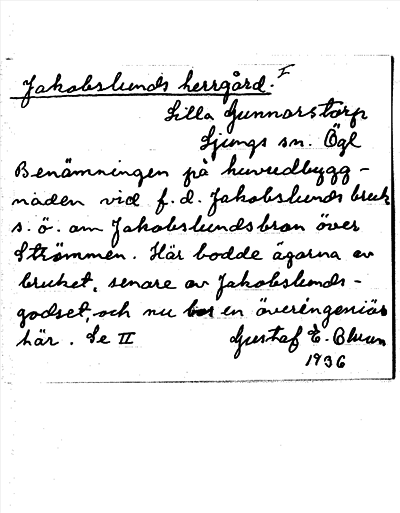 Jakobslunds herrgård. I
Lilla Gunnarstorp
Ljungs sn. Ögl
Benämningen på huvudbygg-
naden vid f.d. Jakobslunds bruk
s.ö. om Jakobslundsbron över
Strömmen. Här bodde ägarna av
bruket, senare av Jakobslunds-
godset, och nu bor en överingeniör
här. Se II
Gustaf E. Bluun
1936